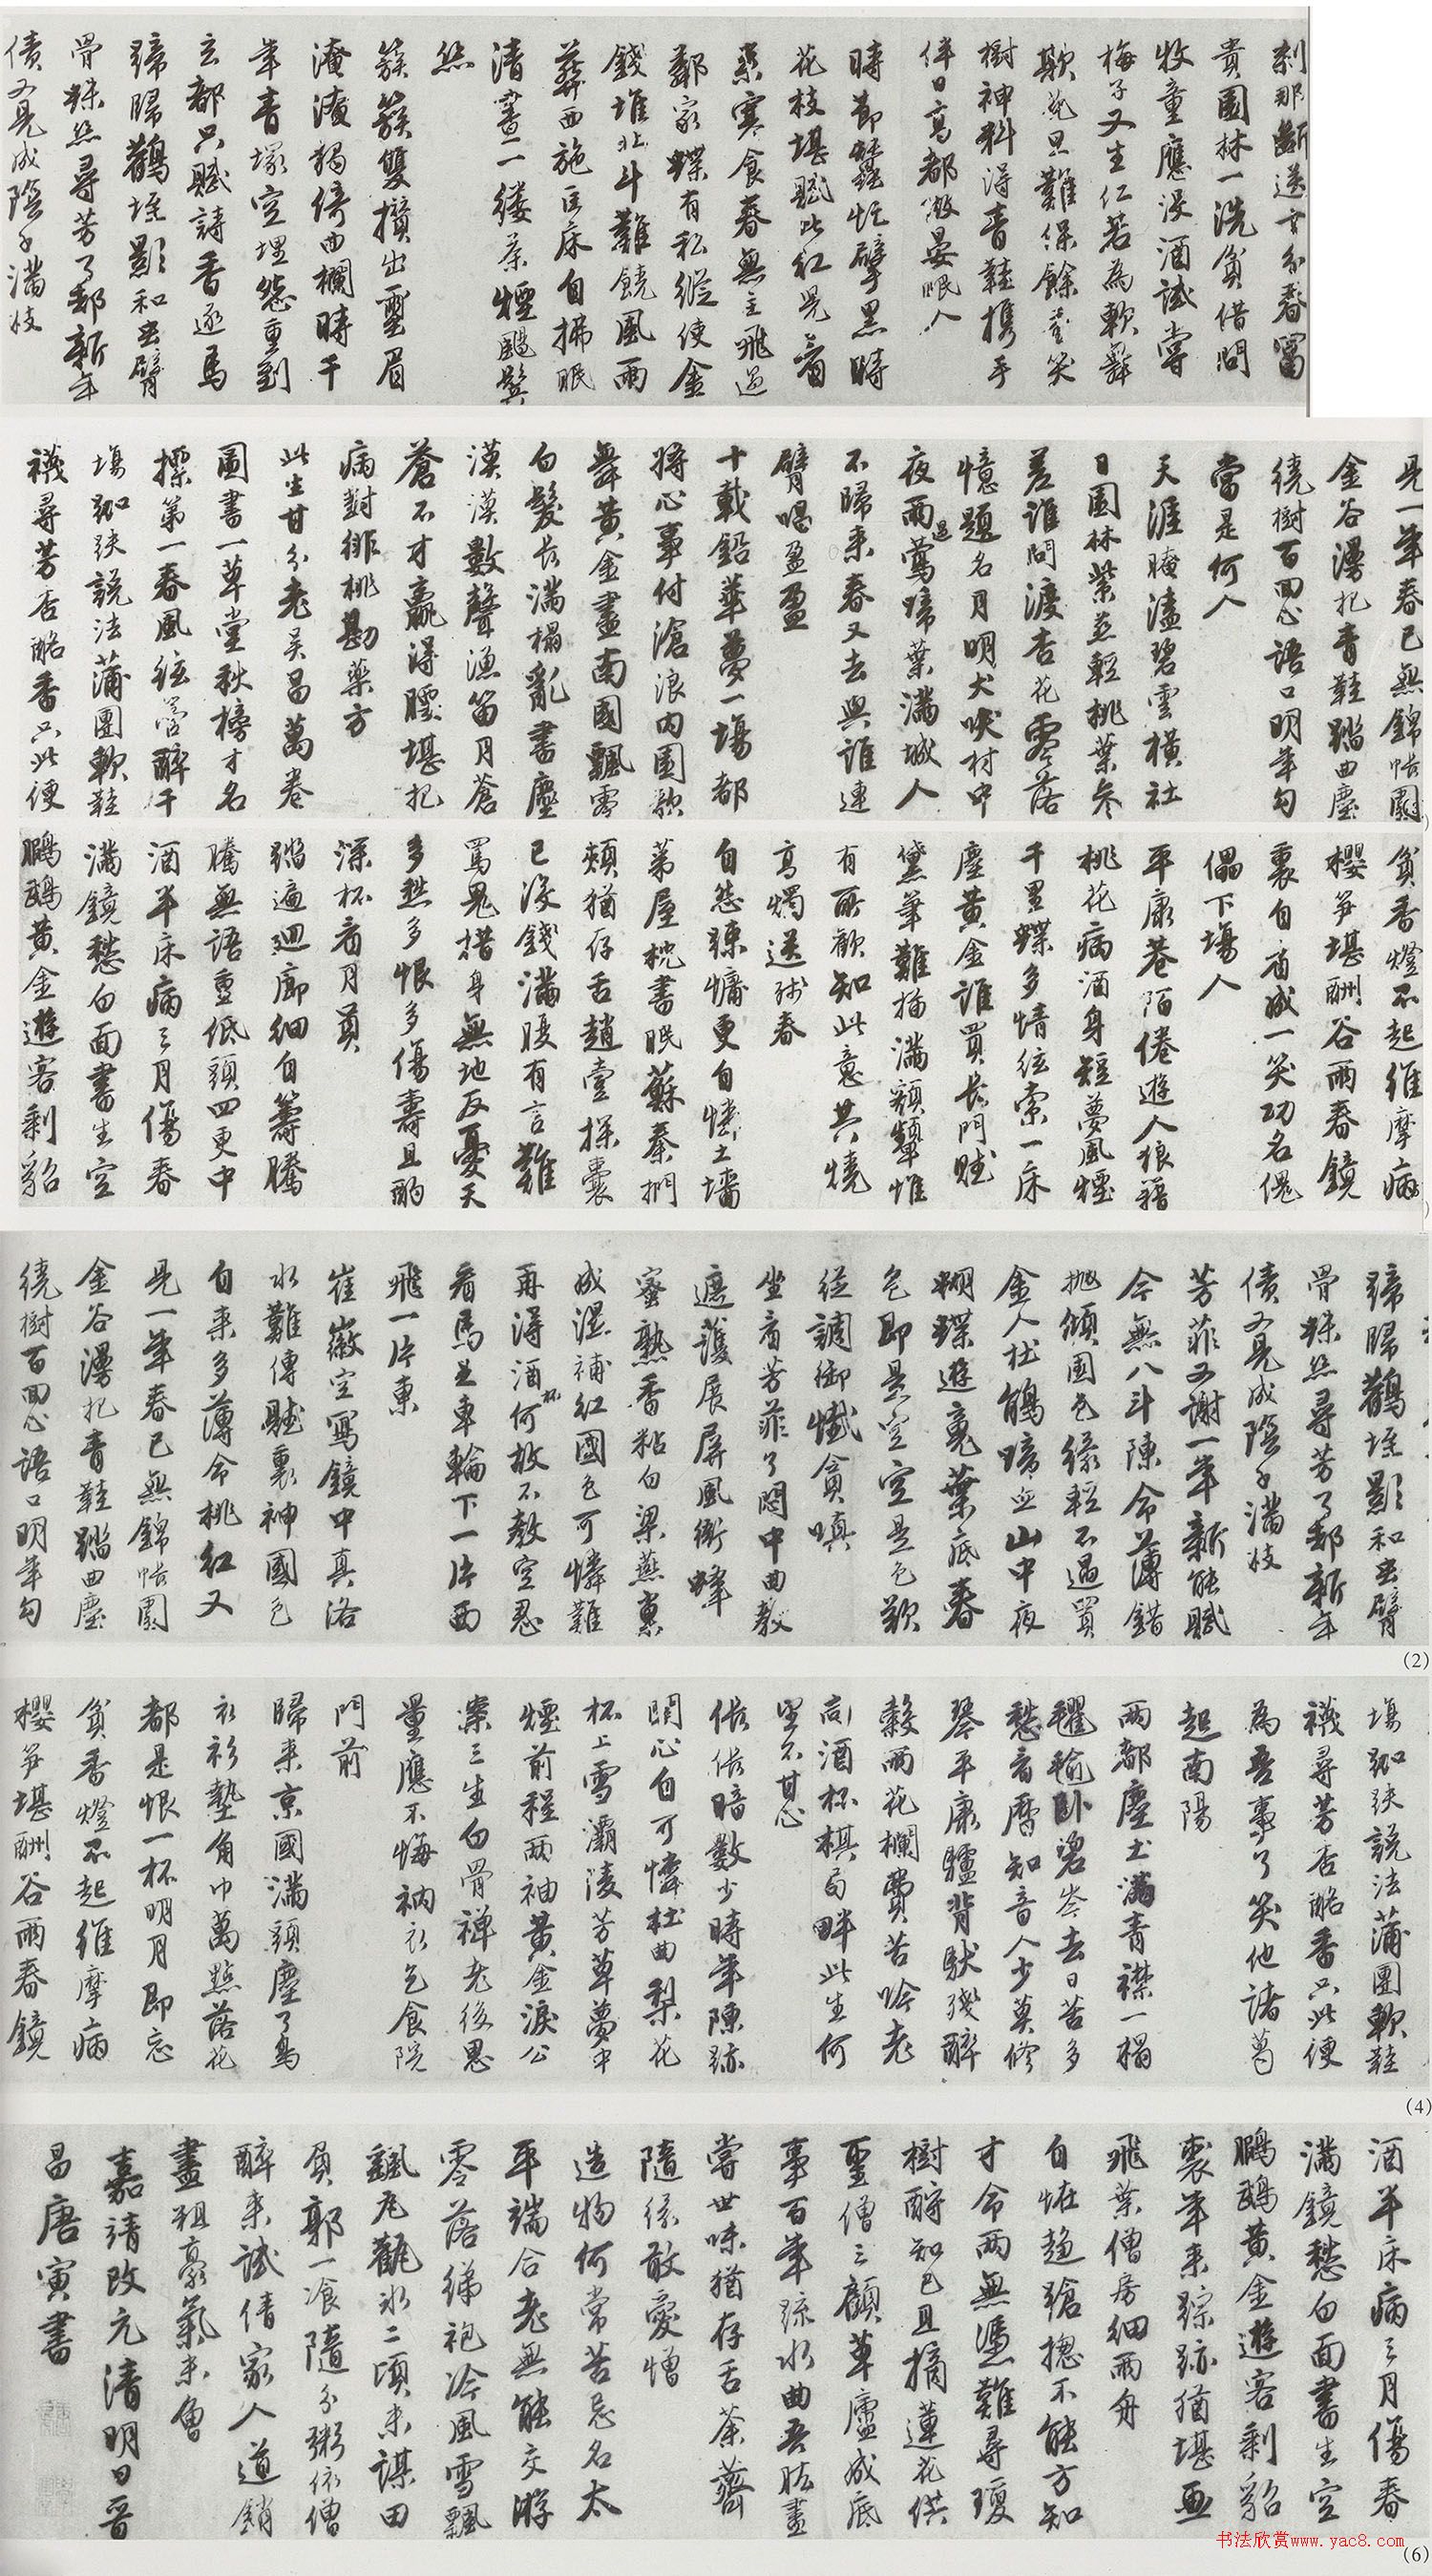 刹那斷送十分春富
貴園林一洗貧借問
牧童應沒酒試嘗
梅子又生仁若為軟舞
欺花旦難保餘香笑
樹神料得青鞋攜手
伴日高都做晏眠人
時節蠶忙擘黑時
花枝堪賦比紅兒看
來寒食春無主飛過
鄰家蝶有私縱使金
錢堆北斗難饒風雨
葬西施匡床自拂眠
清晝一縷茶煙颺鬢
絲
簇簇雙攢出蠒眉
淹淹獨倚曲欄時千
年青塚空埋怨重到
玄都只賦詩香逐馬
蹄歸蟻垤影和蟲臂
骨蛛絲尋芳了卻新年
債又見成陰子滿枝
見一年春已無錦帳圍
金谷漫把青鞋踏曲塵
繞樹百回心語口明年勾
當是何人
天涯晻溘碧雲橫社
日園林紫燕輕桃葉參
差誰問渡杏花零落
憶題名月明犬吠村中
夜雨過鶯啼葉滿城人
不歸來春又去與誰連
臂唱盈盈
十載鉛華夢一場都
將心事付滄浪內園歌
舞黃金盡南國飄零
白髮長滿榻亂書塵
漠漠數聲漁笛月蒼
蒼不才贏得腰堪把
病對緋桃勘藥方
此生甘分老吳昌萬卷
圖書一草堂秋榜才名
標第一春風弦管醉千
場跏趺說法蒲團軟鞋
襪尋芳杏酪香只此便
貧香燈不起維摩病
櫻筍堪酬谷雨春鏡
裏自看成一笑功名傀
儡下場人
平康巷陌倦遊人狼籍
桃花病酒身短夢風煙
千里蝶多情弦索一床
塵黃金誰買長門賦
黛筆難描滿額顰惟
有所歡知此意共燒
高燭送殘春
自怨疎慵更自憐土牆
茅屋枕書眠蘇秦捫
頰猶存舌趙壹探囊
已沒錢滿腹有言難
罵鬼措身無地反憂天
多愁多恨多傷壽且酌
深杯看月圓
踏遍迴廊細自籌騰
騰無語重低頭四更中
酒半床病三月傷春
滿鏡愁白面書生空
鸊鵜黃金遊客剩貂
蹄歸蟻垤影和蟲臂
骨蛛絲尋芳了卻新年
債又見成陰子滿枝
芳菲又謝一年新能賦
今無八斗陳命薄錯
拋傾國色緣輕不遇買
金人杜鵑啼血山中夜
蝴蝶遊魂葉底春
色即是空空是色歡
從調御懺貪嗔
坐看芳菲了悶中曲教
遮護展屏風銜蜂
蜜熟香粘白梁燕巢
成濕補紅國色可憐難
再得酒杯何故不教空忍
看馬足車輪下一片西
飛一片東
崔徽空寫鏡中真洛
水難傳賦裏神國色
自來多薄命桃紅又
見一年春已無錦帳圍
金谷漫把青鞋踏曲塵
繞樹百回心語口明年勾
(2)
場跏趺說法蒲團軟鞋
襪尋芳杏酪香只此便
為吾事了笑他諸葛
起南陽
兩都塵土滿青襟一榻
氍毹臥碧岑去日苦多
愁看曆知音人少莫修
琴平康驢背馱殘醉
穀雨花欄費苦吟老
向酒杯棋局畔此生何
望不甘心
倀倀暗數少時年陳跡
關心自可憐杜曲梨花
杯上雪灞陵芳草夢中
煙前程兩袖黃金淚公
案三生白骨禪老後思
量應不悔衲衣乞食院
門前
歸來京國滿頭塵了烏
衣衫墊角巾萬點落花
都是恨一杯明月即忘
貧香燈不起維摩病
櫻筍堪酬谷雨春鏡
(4)
酒半床病三月傷春
滿鏡愁白面書生空
鸊鵜黃金遊客剩貂
裘年來踪跡猶堪畫
飛葉僧房細雨舟
自怪趨蹌總不能方知
才命兩無憑難尋瓊
樹酹知己且摘蓮花供
聖僧三顧草廬成底
事百年疏水曲吾肱盡
嘗世味猶存舌荼薺
隨緣敢愛憎
造物何常苦忌名太
平端合老無能交游
零落綈袍冷風雪飄
飄瓦觀冰二頃未謀田
負郭一飡隨分粥依僧
醉來試倩家人道銷
盡粗豪氣未曾
嘉靖改元清明日晉
昌唐寅書
书法欣赏www.yac8.com
(6)